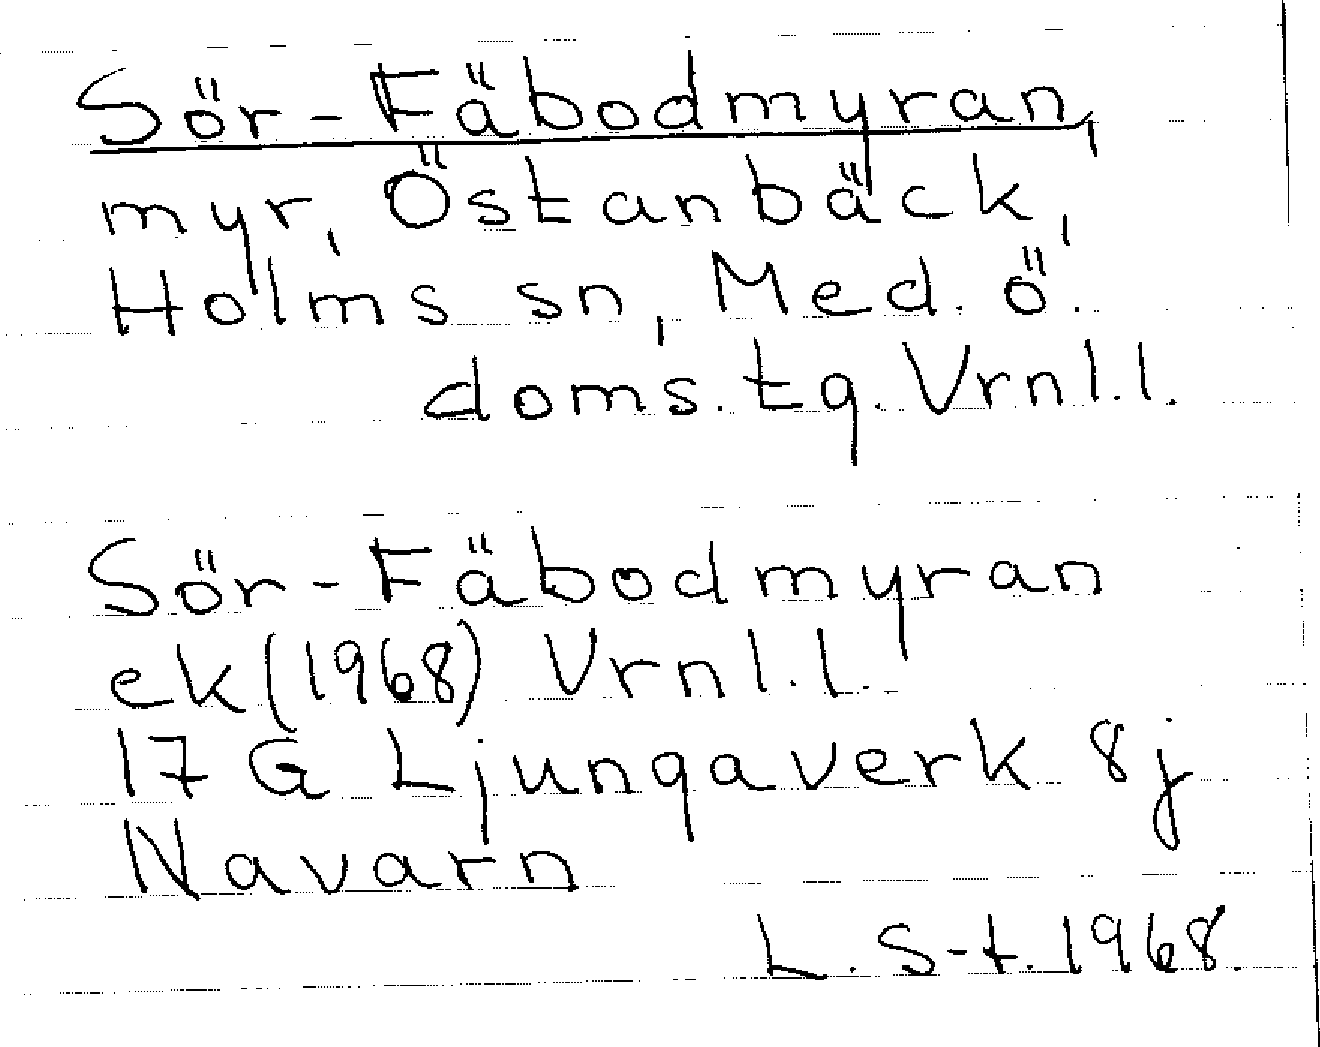 Sör-Fäbodmyran,
myr, Östanbäck,
Holms sn, Med. ö.
doms. tg. Vrnl.l.
Sör-Fäbodmyran
ek(1968) Vrnl.l.
17 G Ljungaverk 8j
Navarn
L. S-t. 1968.